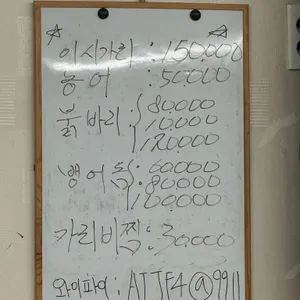 이시가리 : 150,000
농어 : 50,000
붉바리 : 80,000
10,000
120,000
뱅어돔 : 60,000
80,000
100,000
가리비찜 : 30,000
와이파이 : ATJF4@9911